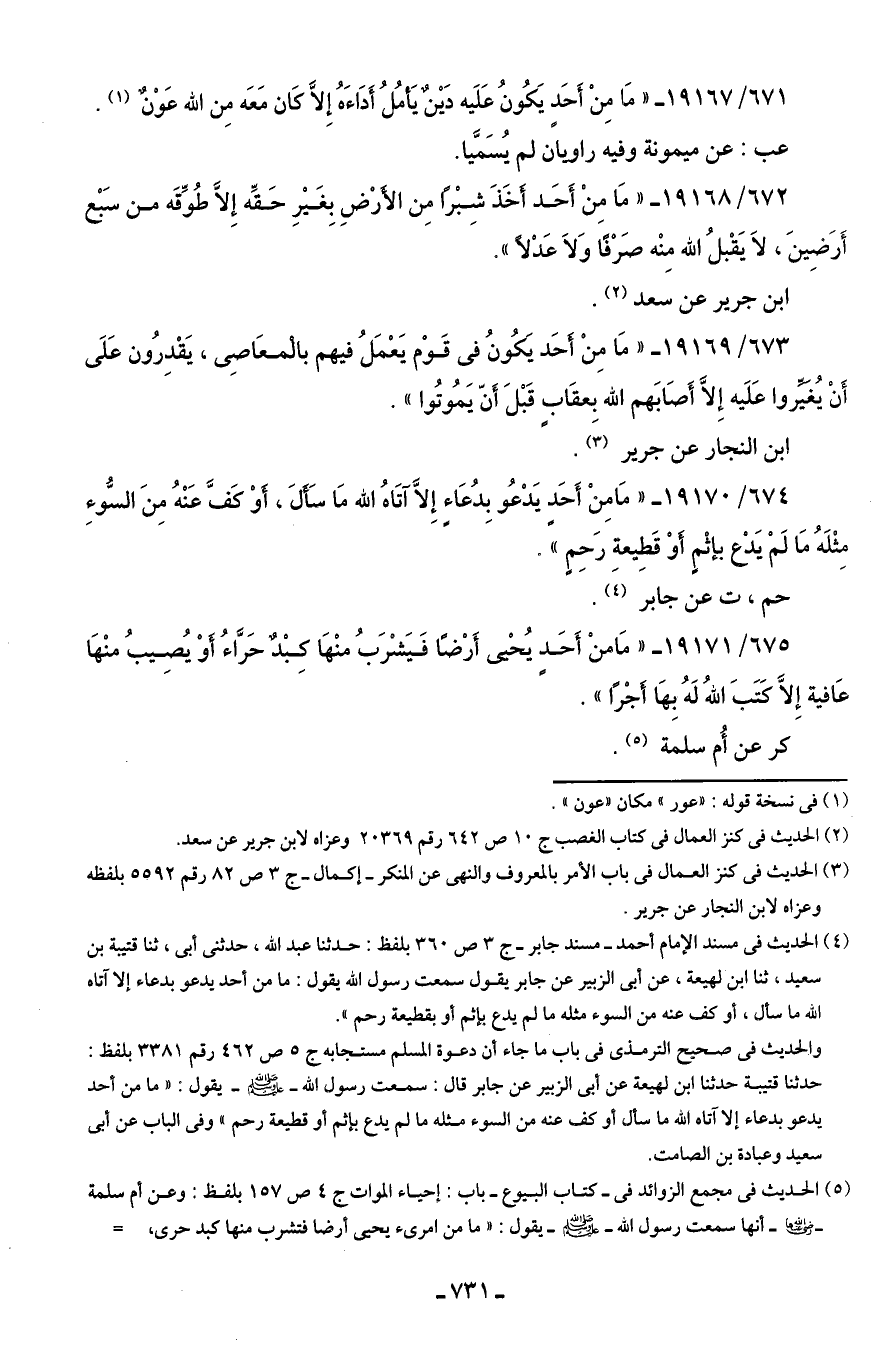 ٦٧١/ ١٩١٦٧ـ « مَا مِنْ أَحَدٍ يَكُونُ عَلَيه دَيْنٌ يَأمُلُ أَدَاءَهُ إِلاَّ كَان مَعَه مِن الله عَوْنٌ (١) .
عب : عن ميمونة وفيه راويان لم يُسَمَّيا.
٦٧٢/ ١٩١٦٨ـ « مَا مِنْ أَحَد أَخَذَ شِبْرًا مِن الأَرْضِ بِغَيْرِ حَقِّه إِلاَّ طُوِّقَه مِن سَبْع
أَرَضِينَ ، لاَ يَقْبلُ الله مِنْه صَرْفًا وَلاَ عَدْلاً ».
ابن جرير عن سعد (٢) .
٦٧٣/ ١٩١٦٩ـ « مَا مِنْ أَحَد يَكُونُ فى قَوْم يَعْمَلُ فيهم بالْمعَاصِى ، يَقْدِرُون عَلَى
أَنْ يُغَيِّروا عَلَيه إِلاَّ أَصَابَهم الله بِعقَابٍ قَبْلَ أَنّ يَمُوتُوا » .
ابن النجار عن جرير (٣) .
٦٧٤/ ١٩١٧٠ـ « مَامِنْ أَحَدٍ يَدْعُو بِدُعَاءٍ إِلاَّ آتَاهُ الله مَا سَأَلَ ، أَوْ كَفَّ عَنْهُ مِنَ السُّوءِ
مِثْلَهُ مَا لَمْ يَدْع بإِثْمٍ أَوْ قَطِيعةِ رَحِمٍ » .
حم ، ت عن جابر (٤) .
٦٧٥/ ١٩١٧١ـ « مَامِنْ أَحَدٍ يُحْيى أَرْضًا فَيَشْرَبُ مِنْهَا كِبْدٌ حَرَّاءُ أَوْ يُصِيبُ مِنْهَا
عَافية إِلاَّ كَتَبَ اللهُ لَهُ بِهَا أَجْرًا » .
كر عن أُم سلمة (٥) .
(١) فى نسخة قوله : «عور » مكان «عون » .
(٢) الحديث فى كنز العمال فى كتاب الغصب ج ١٠ ص ٦٤٢ رقم ٢٠٣٦٩ وعزاه لابن جرير عن سعد.
(٣) الحديث فى كنز العمال فى باب الأمر بالمعروف والنهى عن المنكر ـ إكمال ـ ج ٣ ص ٨٢ رقم ٥٥٩٢ بلفظه
وعزاه لابن النجار عن جرير .
(٤) الحديث فى مسند الإمام أحمد ـ مسند جابر ـ ج ٣ ص ٣٦٠ بلفظ : حدثنا عبد الله ، حدثنى أبى ، ثنا قتيبة بن
سعيد ، ثنا ابن لهيعة ، عن أبى الزبير عن جابر يقول سمعت رسول الله يقول : ما من أحد يدعو بدعاء إلا آتاه
الله ما سأل ، أو كف عنه من السوء مثله ما لم يدع بإثم أو بقطيعة رحم ».
والحديث فى صحيح الترمذى فى باب ما جاء أن دعوة المسلم مستجابه ج ٥ ص ٤٦٢ رقم ٣٣٨١ بلفظ :
حدثنا قتيبة حدثنا ابن لهيعة عن أبى الزبير عن جابر قال : سمعت رسول الله ـ ﷺ ـ يقول : « ما من أحد
يدعو بدعاء إلا آتاه الله ما سأل أو كف عنه من السوء مثله ما لم يدع بإثم أو قطيعة رحم » وفى الباب عن أبى
سعيد وعبادة بن الصامت.
(٥) الحديث فى مجمع الزوائد فى ـ كتاب البيوع ـ باب : إحياء الموات ج ٤ ص ١٥٧ بلفظ : وعن أم سلمة
ـ رضي الله عنها ـ أنها سمعت رسول الله ـ ﷺ ـ يقول : « ما من امرىء يحيى أرضا فتشرب منها كبد حرى، =
ـ ٧٣١ ـ